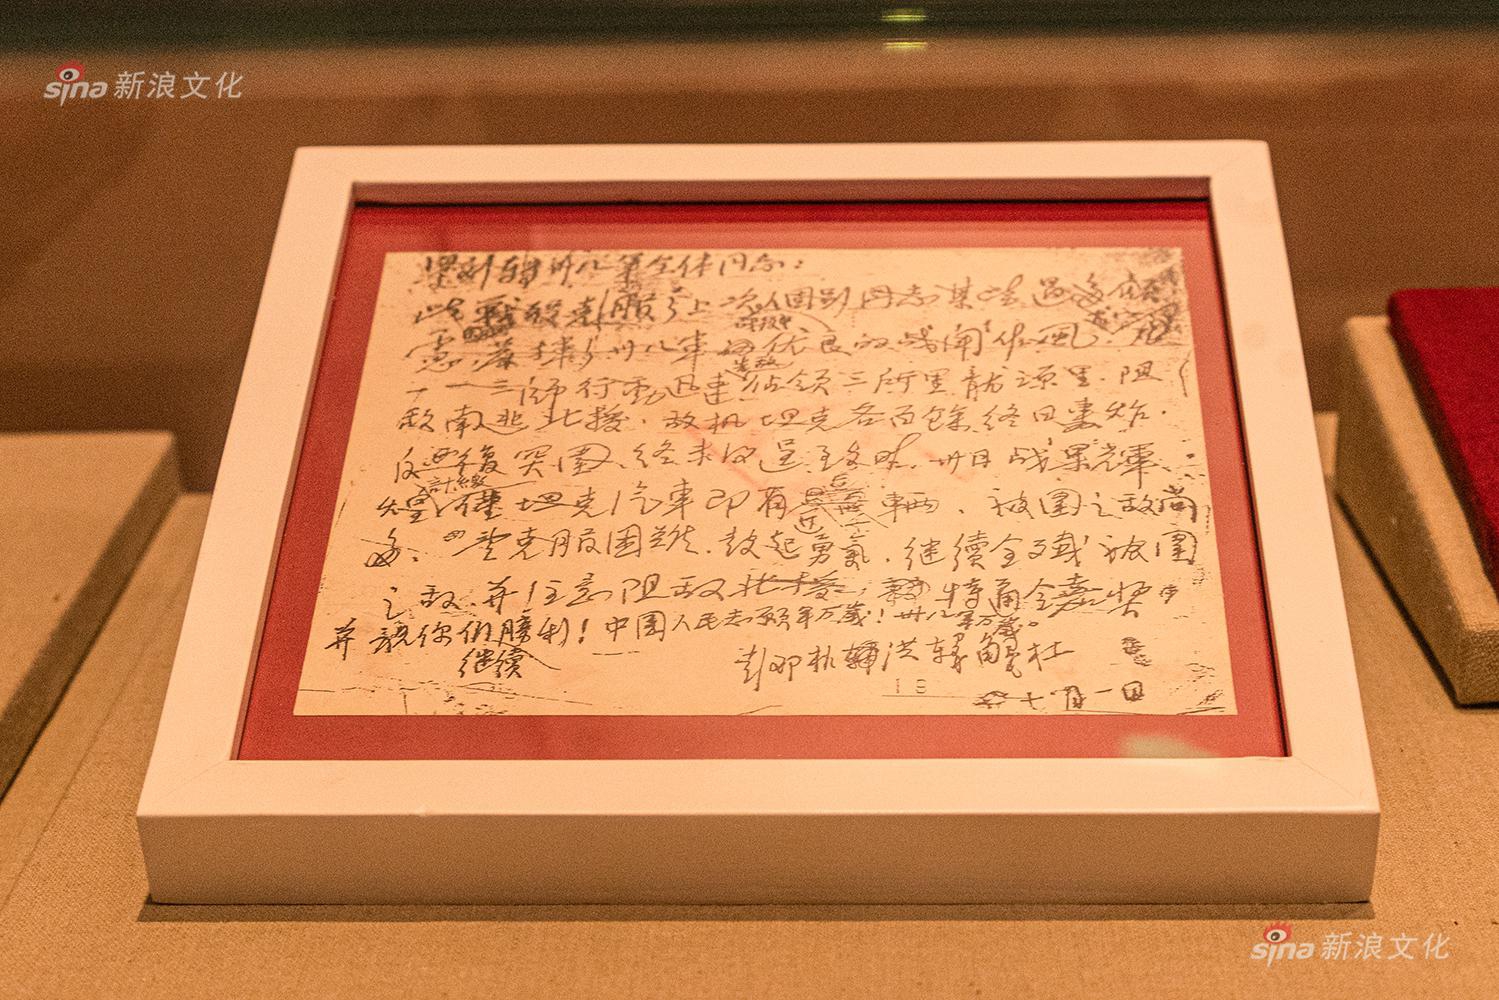 sina 新浪文化
梁刘转卅八军全体同志:
此战役克服了上次个别同志某些过多顾
虑,发扬了卅八军优良的战斗作风,尤
一一三师行动迅速
先敌
占领三所里龙源里,阻
敌南逃北援。敌机坦克各百余终日轰炸,
反复突围,终未得逞。至昨卅日战果辉
煌,计缴仅坦克汽车即有近千辆,被围之敌尚
多。望克服困难,鼓起勇气,继续全歼被围
之敌,并注意阻敌北援。特通令嘉奖,
并祝你们
继续
胜利!中国人民志愿军万岁!卅八军万岁。
彭邓朴洪韩解杜
19
十二月一日
sina 新浪文化